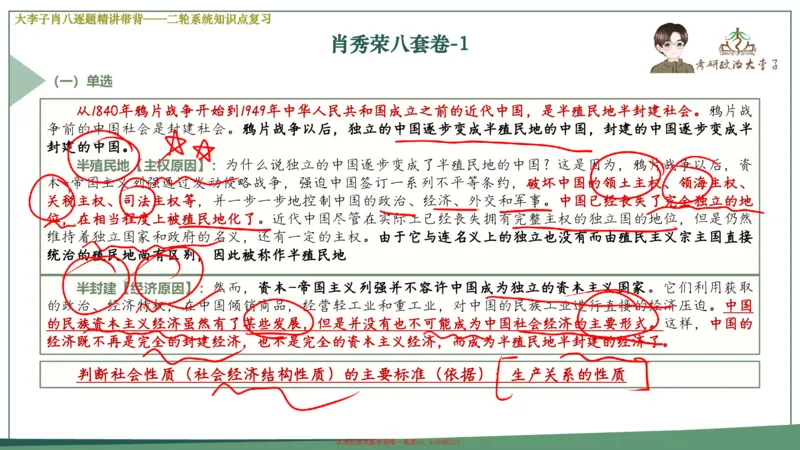 大李子肖八逐题精讲带背——二轮系统知识点复习
肖秀荣八套卷-1
考研政治大李子
（一）单选
从1840年鸦片战争开始到1949年中华人民共和国成立之前的近代中国，是半殖民地半封建社会。鸦片战
争前的中国社会是封建社会。鸦片战争以后，独立的中国逐步变成半殖民地的中国，封建的中国逐步变成半
封建的中国。
半殖民地【主权原因】：为什么说独立的中国逐步变成了半殖民地的中国？这是因为，鸦片战争以后，资
本-帝国主义列强通过发动侵略战争，强迫中国签订一系列不平等条约，破坏中国的领土主权、领海主权、
关税主权、司法主权等，并一步一步地控制中国的政治、经济、外交和军事。中国已经丧失了完全独立的地
位，在相当程度上被殖民地化了。近代中国尽管在实际上已经丧失拥有完整主权的独立国的地位，但是仍然
维持着独立国家和政府的名义，还有一定的主权。由于它与连名义上的独立也没有而由殖民主义宗主国直接
统治的殖民地尚有区别，因此被称作半殖民地
半封建【经济原因】：然而，资本-帝国主义列强并不容许中国成为独立的资本主义国家。它们利用获取
的政治、经济特权，在中国倾销商品，经营轻工业和重工业，对中国的民族工业进行直接的经济压迫。中国
的民族资本主义经济虽然有了某些发展，但是并没有也不可能成为中国社会经济的主要形式。这样，中国的
经济既不再是完全的封建经济，也不是完全的资本主义经济，而成为半殖民地半封建的经济了。
判断社会性质（社会经济结构性质）的主要标准（依据） 生产关系的性质